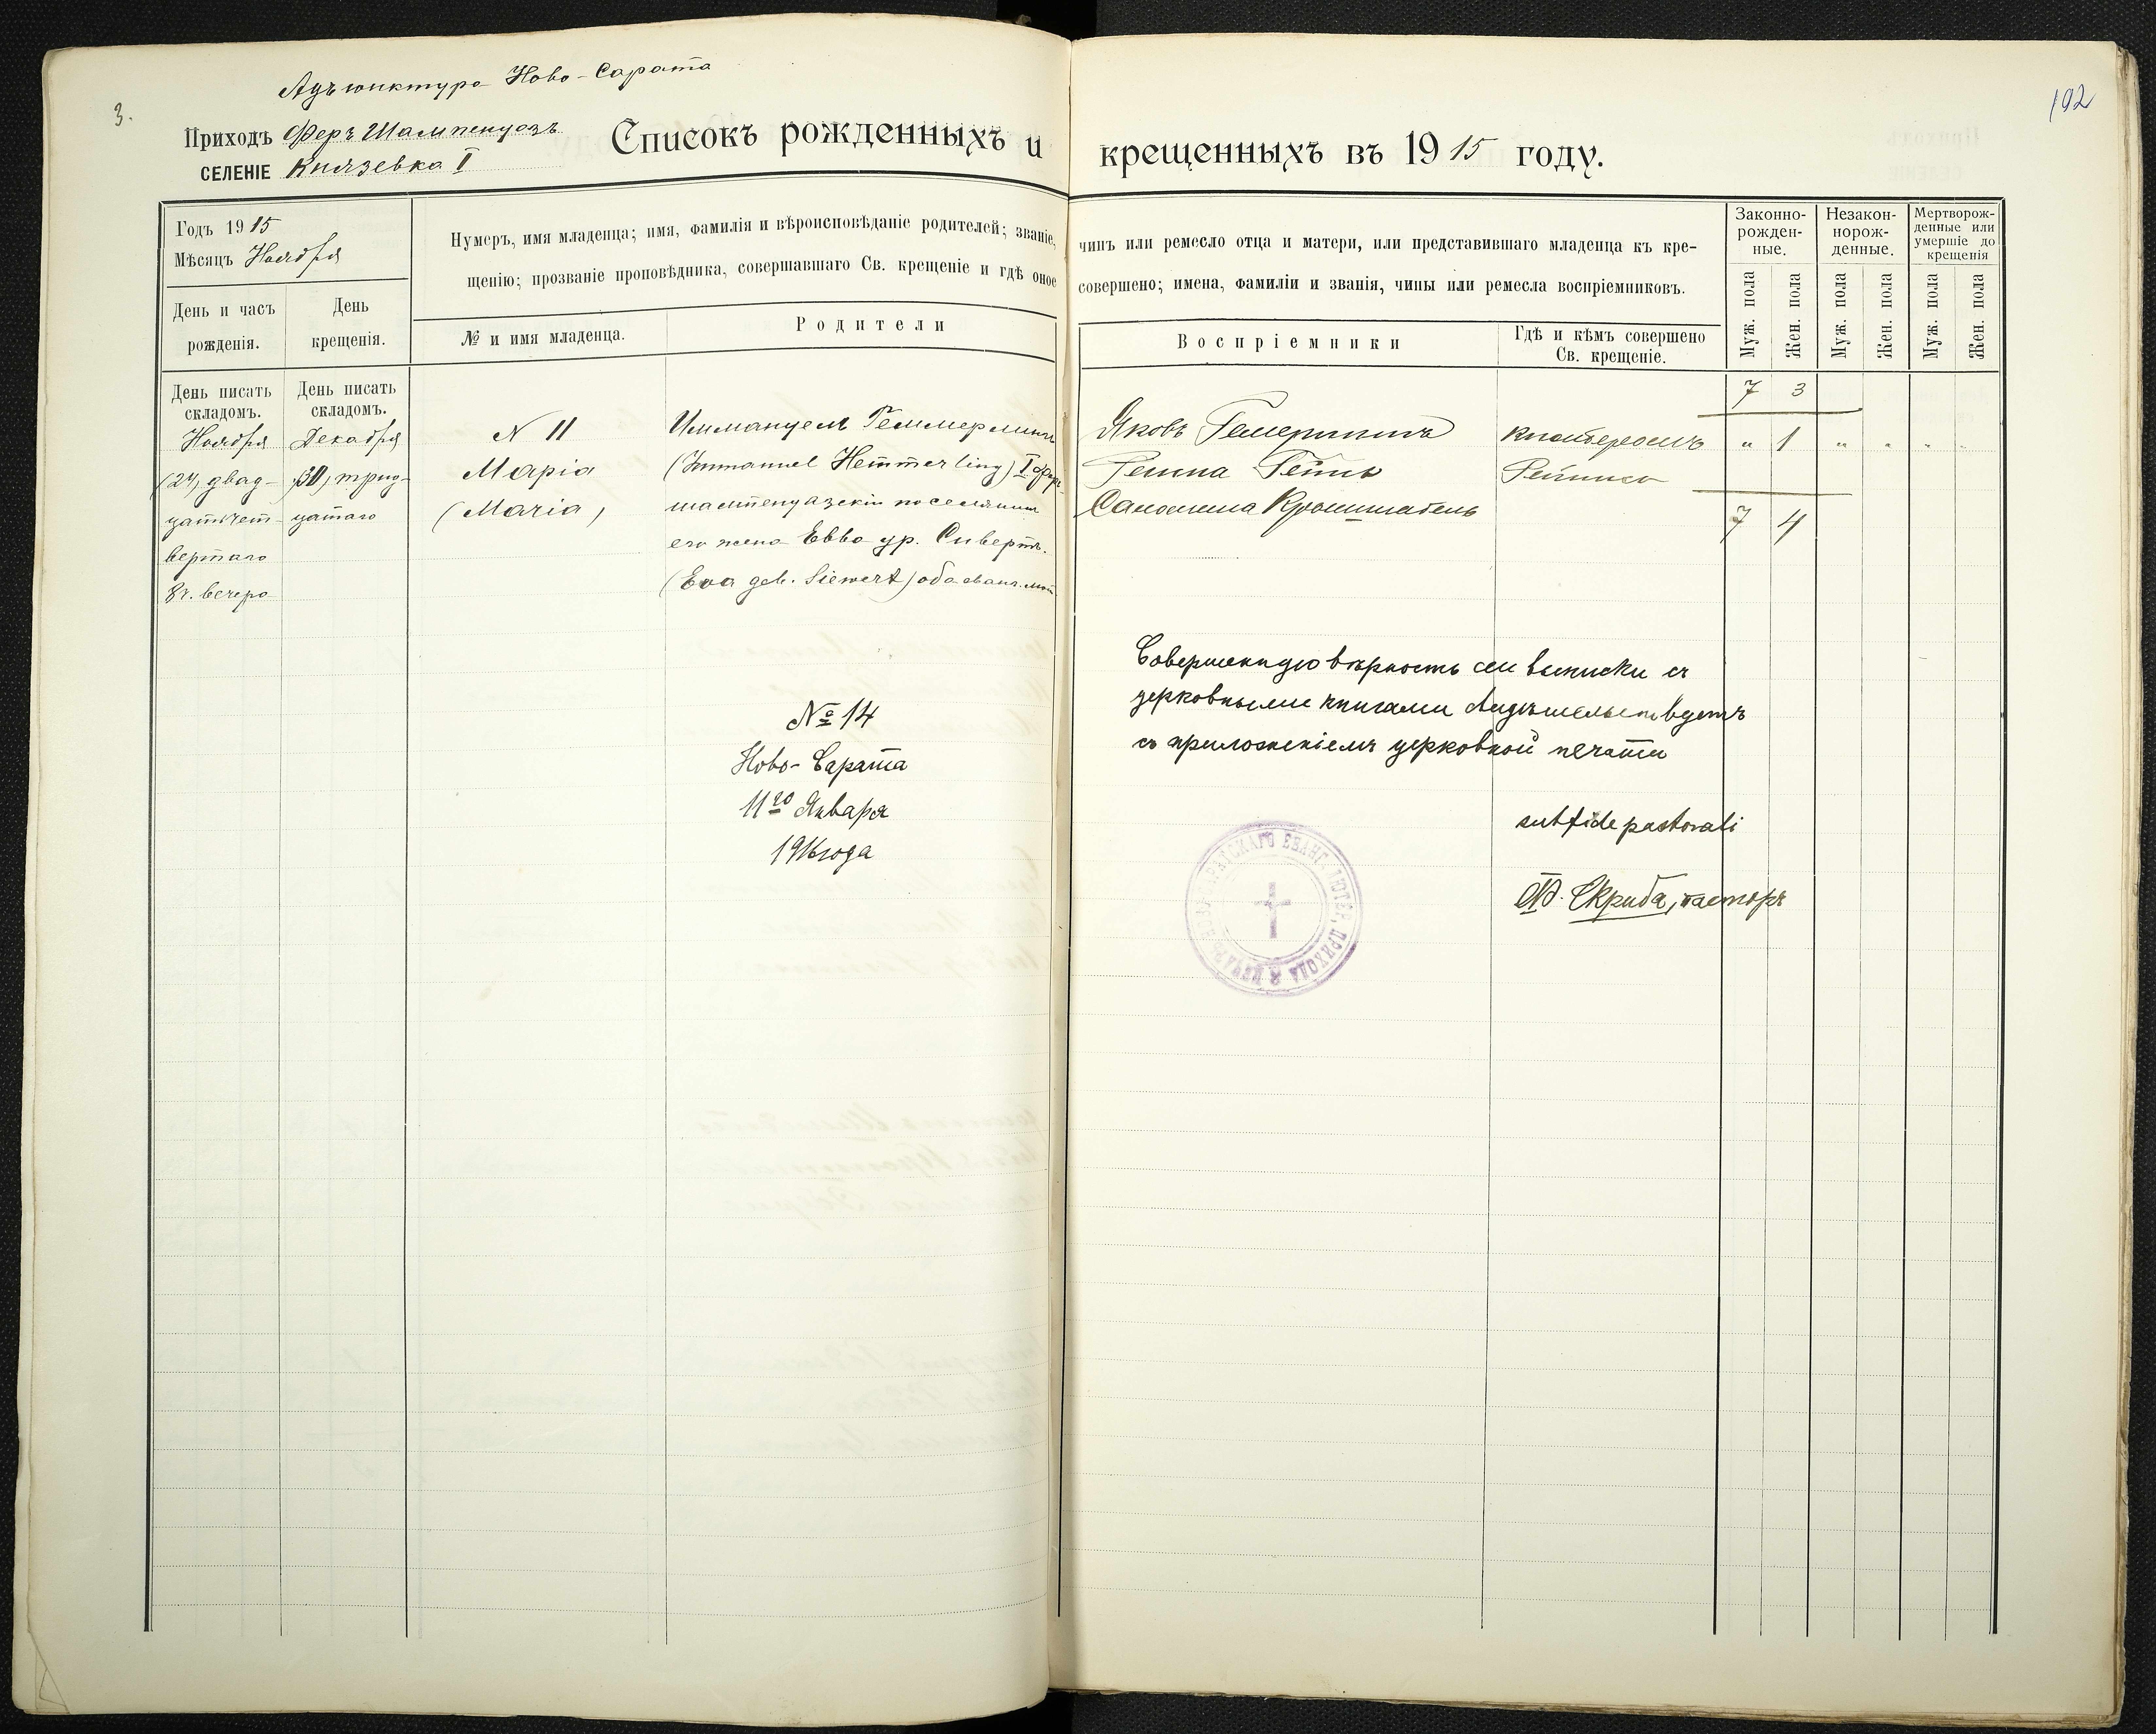 3.
192
Адъюнктура Ново-Сарата
Приходъ Феръ Шампенуазъ
СЕЛЕНІЕ Князевка I
Списокъ рожденныхъ и крещенныхъ въ 1915 году.
Годъ 1915
Мѣсяцъ Ноября
День и часъ рожденія.
День крещенія.
Нумеръ, имя младенца; имя, фамилія и вѣроисповѣданіе родителей; званіе, чинъ или ремесло отца и матери, или представившаго младенца къ кре-
щенію; прозваніе проповѣдника, совершавшаго Св. крещеніе и гдѣ оное совершено; имена, фамиліи и званія, чины или ремесла воспріемниковъ.
№ и имя младенца.
Родители
Воспріемники
Гдѣ и кѣмъ совершено
Св. крещеніе.
Законно-
рожден-
ные.
Незакон-
норож-
денные.
Мертворож-
денные или
умершіе до
крещенія
Муж. пола
Жен. пола
Муж. пола
Жен. пола
Муж. пола
Жен. пола
День писать
складомъ.
День писать
складомъ.
Ноября
(24) двад-
цатьчет-
вертаго
8ч. вечера
Декабря
(30) трид-
цатаго
N 11
Марія
(Maria)
Иммануел Геммерлинг
(Immanuel Hemmerling) I Фер-
шампенуазскій поселянин
его жена Евва ур. Сивертъ.
(Eva geb. Siewert) оба еванг. лют.
Яковъ
Саломина
7 3
" 1 " " " "
7 4
№ 14
Ново-Сарата
11го Января
1916 года
Совершенную вѣрность сей выписки съ
церковными книгами свидѣтельствуетъ
съ приложеніемъ церковной печати
sub fide pastorali
Скриба, пасторъ
ЕВАНГ. ЛЮТЕР. ПРИХОДА